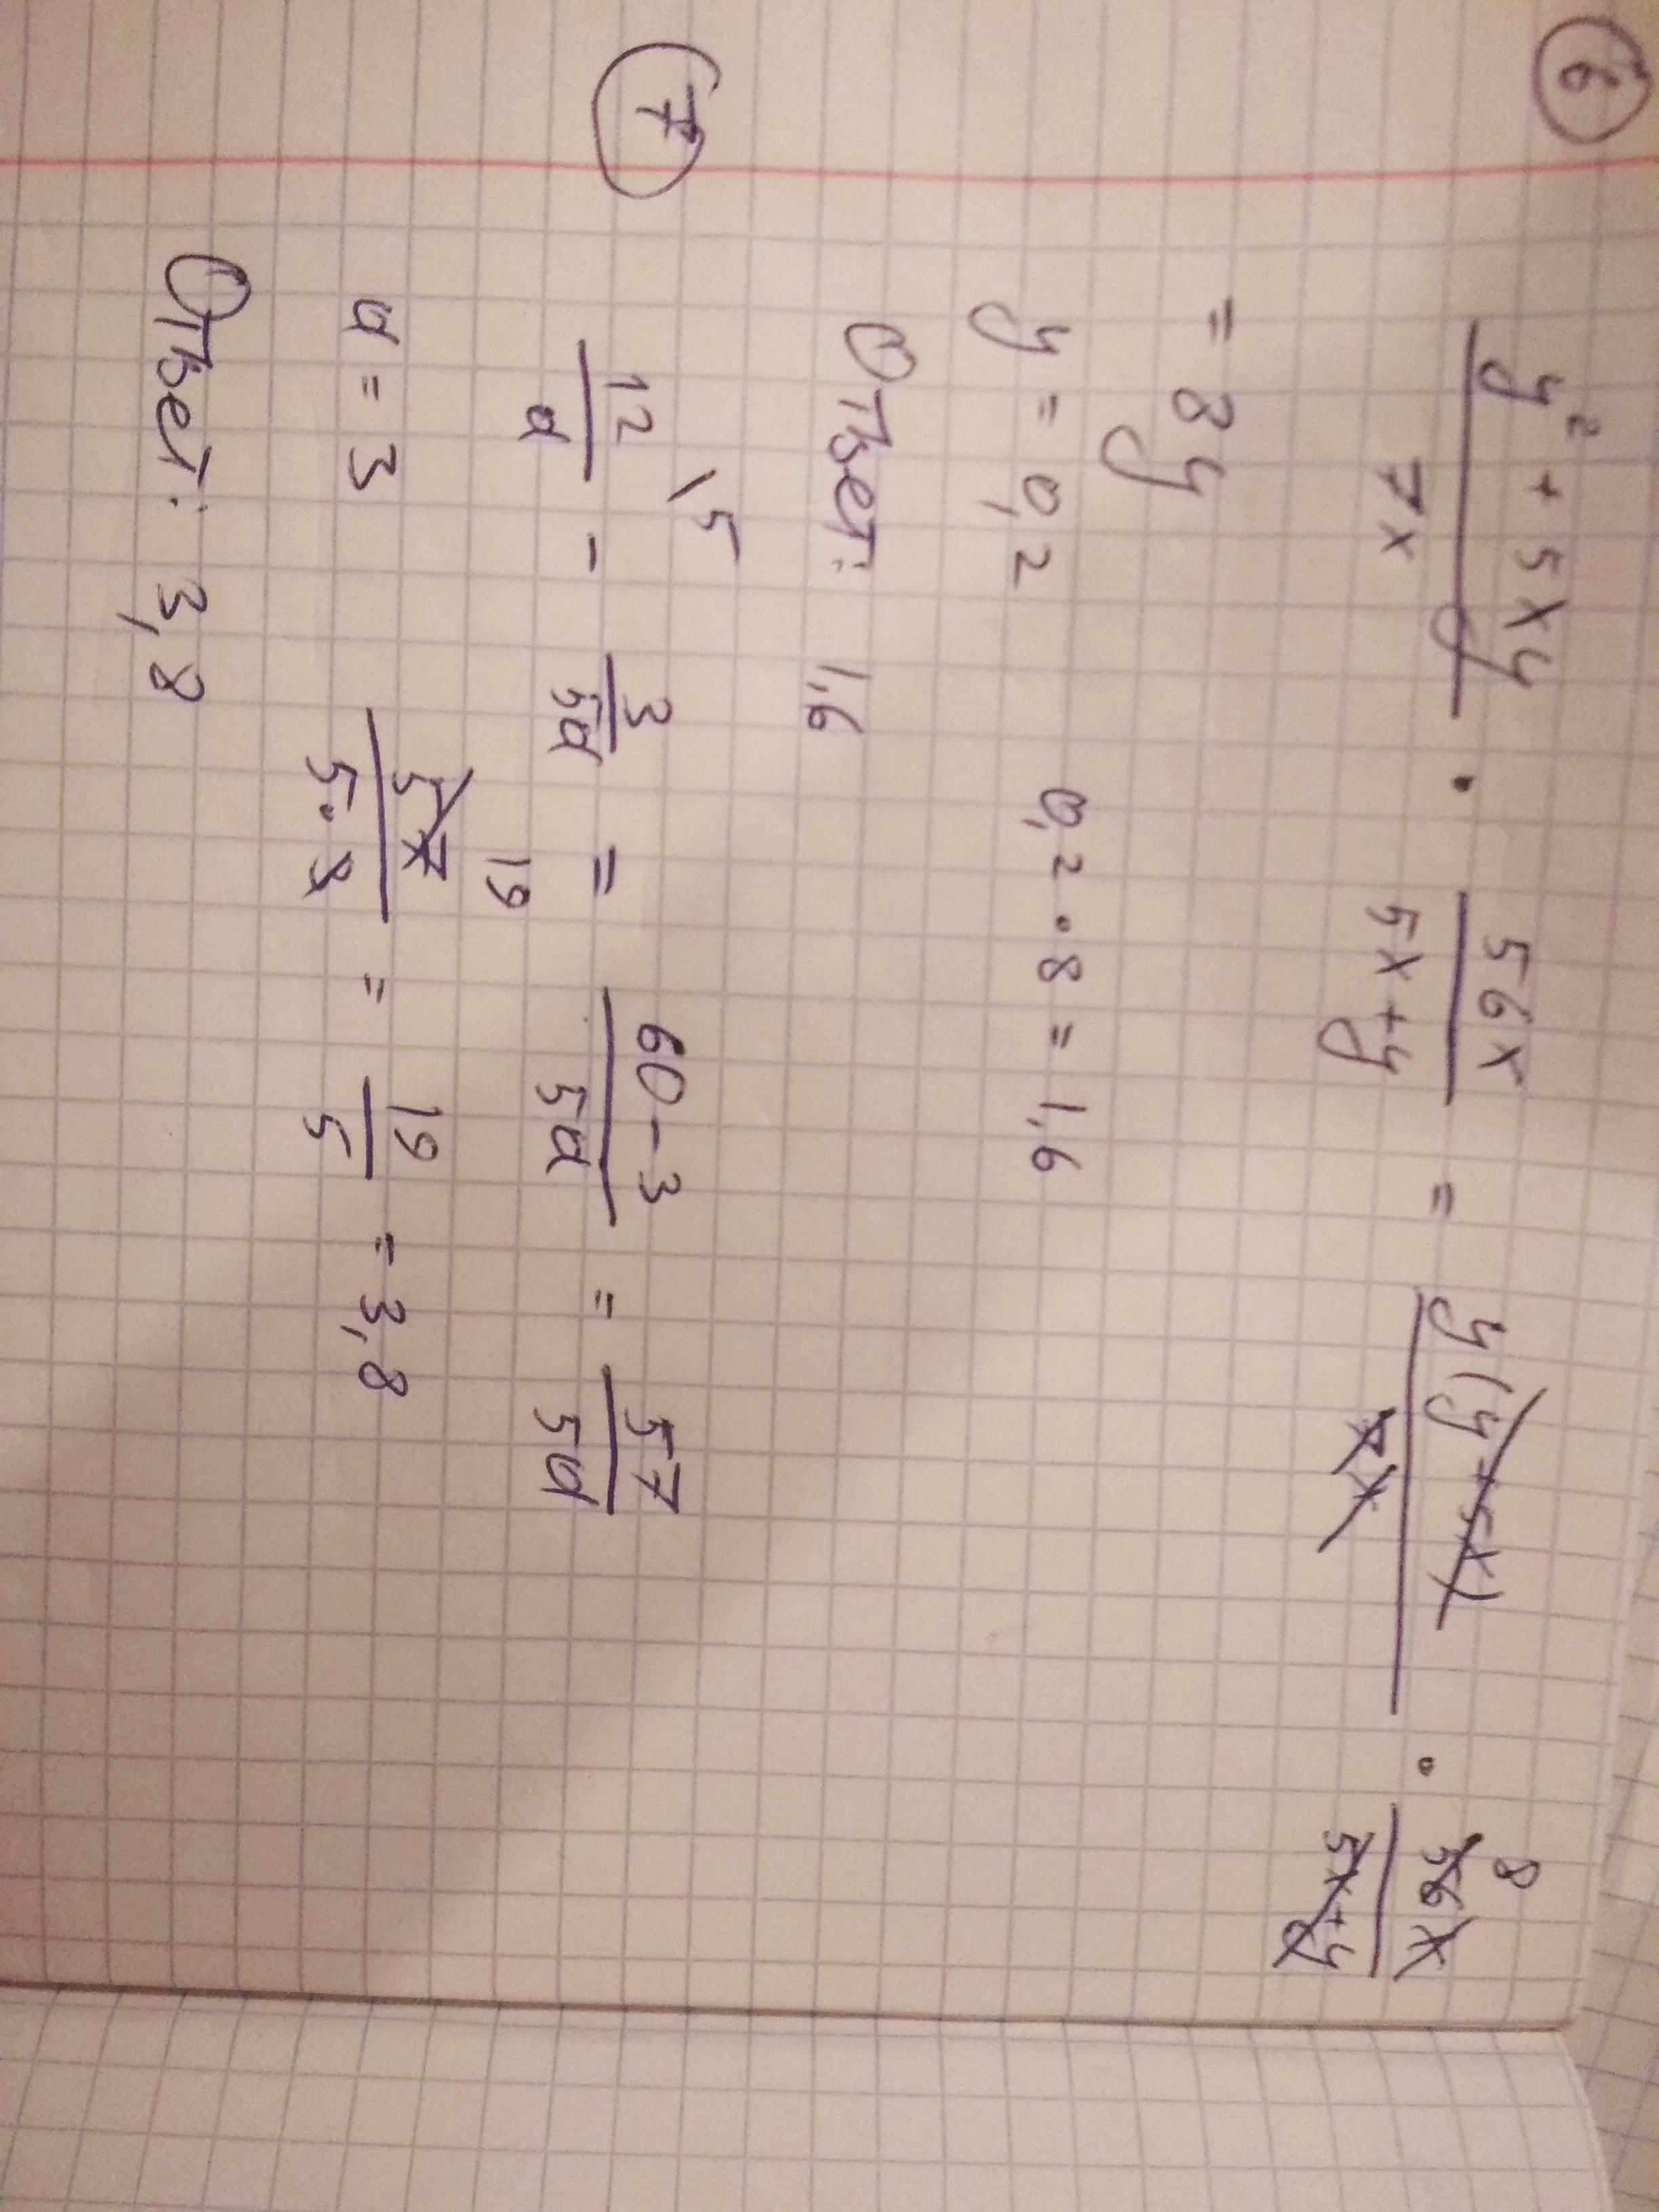 6
(y² + 5xy)/(7x) · (56x)/(5x+y) = (y(y+5x))/(7x) · (56x)/(5x+y) 8
= 8y
y = 0,2 0,2 · 8 = 1,6
Ответ: 1,6
7
12/a \5 - 3/(5a) = (60-3)/(5a) = 57/(5a)
a = 3 57/(5·3) 19 = 19/5 = 3,8
Ответ: 3,8